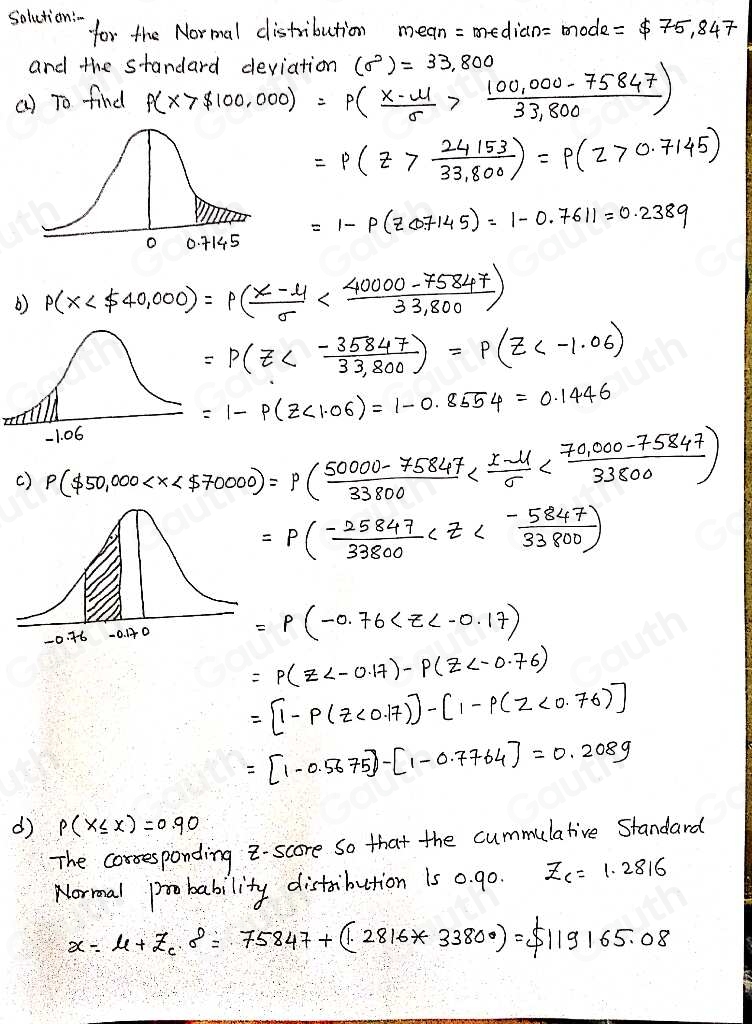 Solution:-
for the Normal distribution mean = median = mode = $75,847
and the standard deviation (σ) = 33,800
a) To find P(X > $100,000) = P( X-μ/σ > 100,000-75847/33,800 )
= P( Z > 24153/33,800 ) = P(Z > 0.7145)
= 1- P(Z<0.7145) = 1- 0.7611 = 0.2389
0 0.7145
b) P(X < $40,000) = P( X-μ/σ < 40000-75847/33,800 )
= P( Z < -35847/33,800 ) = P( Z < -1.06)
= 1- P(Z<1.06) = 1-0.8554 = 0.1446
-1.06
c) P($50,000 < X < $70000) = P( 50000-75847/33800 < X-μ/σ < 70,000-75847/33800 )
= P( -25847/33800 < Z < -5847/33800 )
= P( -0.76 < Z < -0.17)
-0.76 -0.17 0
= P(Z<-0.17) - P(Z<-0.76)
= [1- P(Z<0.17)] - [1- P(Z<0.76)]
= [1-0.5675] - [1-0.7764] = 0.2089
d) P(X≤x) = 0.90
The corresponding z-score so that the cummulative Standard
Normal probability distribution is 0.90. Zc = 1.2816
x = μ + Zc. σ = 75847 + (1.2816 * 33800) = $119165.08